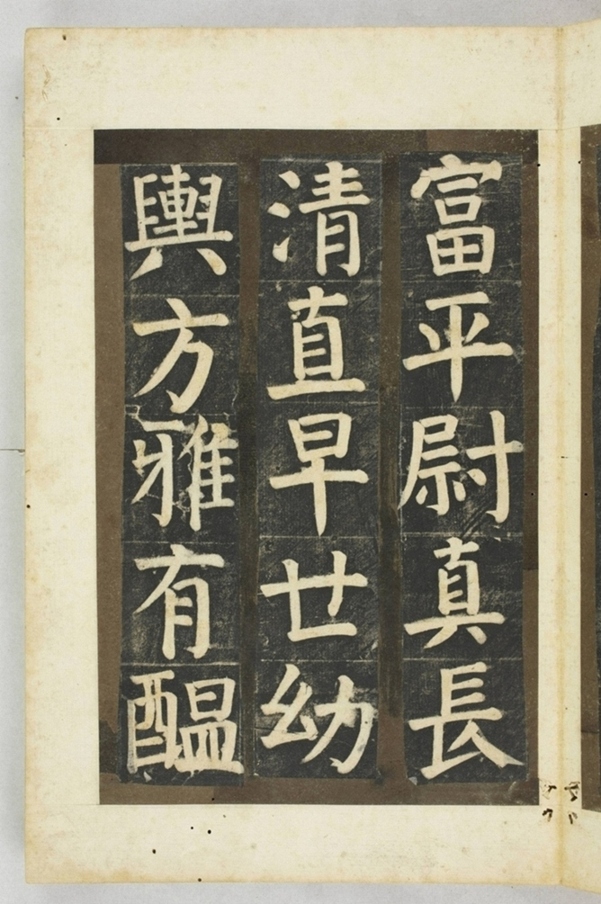 富平尉真長
清直早世幼
輿方雅有醖